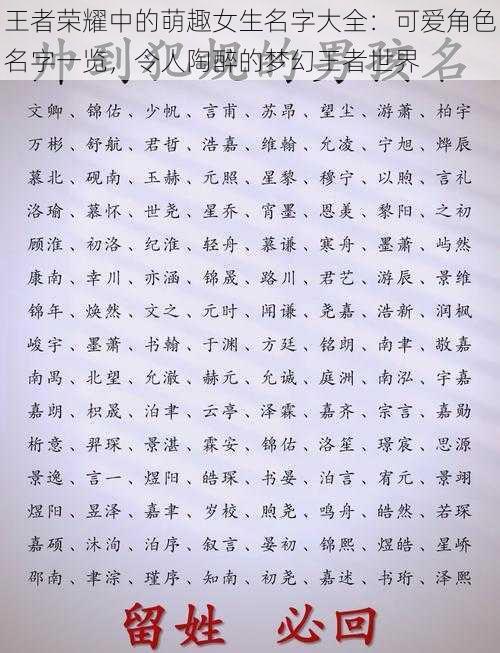 王者荣耀中的萌趣女生名字大全：可爱角色
名字一览，令人陶醉的梦幻王者世界
帅到犯规的男孩名
文卿、锦佑、少帆、言甫、苏昂、望尘、游萧、柏宇
万彬、舒航、君哲、浩嘉、维翰、允凌、宁旭、烨辰
慕北、砚南、玉赫、元照、星黎、穆宁、以煦、言礼
洛瑜、慕怀、世尧、星乔、宵墨、恩美、黎阳、之初
顾淮、初洛、纪淮、轻舟、慕谦、寒舟、墨萧、屿然
康南、幸川、亦涵、锦晟、路川、君艺、游辰、景维
锦年、焕然、文之、元时、闻谦、尧嘉、浩新、润枫
峻宇、墨萧、书翰、于渊、方廷、铭朗、南聿、敬嘉
南禺、北望、允澈、赫元、允诚、庭洲、南泓、宇嘉
嘉朗、枳晟、泊聿、云亭、泽霖、嘉齐、宗言、嘉勋
析意、羿琛、景湛、霖安、锦佑、洛笙、璟宸、思源
景逸、言一、煜阳、皓琛、书晏、泊言、宥元、景翊
煜阳、昱泽、嘉聿、岁校、煦尧、鸣舟、皓然、若琛
嘉硕、沐洵、泊序、叙言、晏初、锦熙、煜皓、星峤
邵南、聿淙、瑾序、知南、初尧、嘉述、书珩、泽熙
留姓 必回